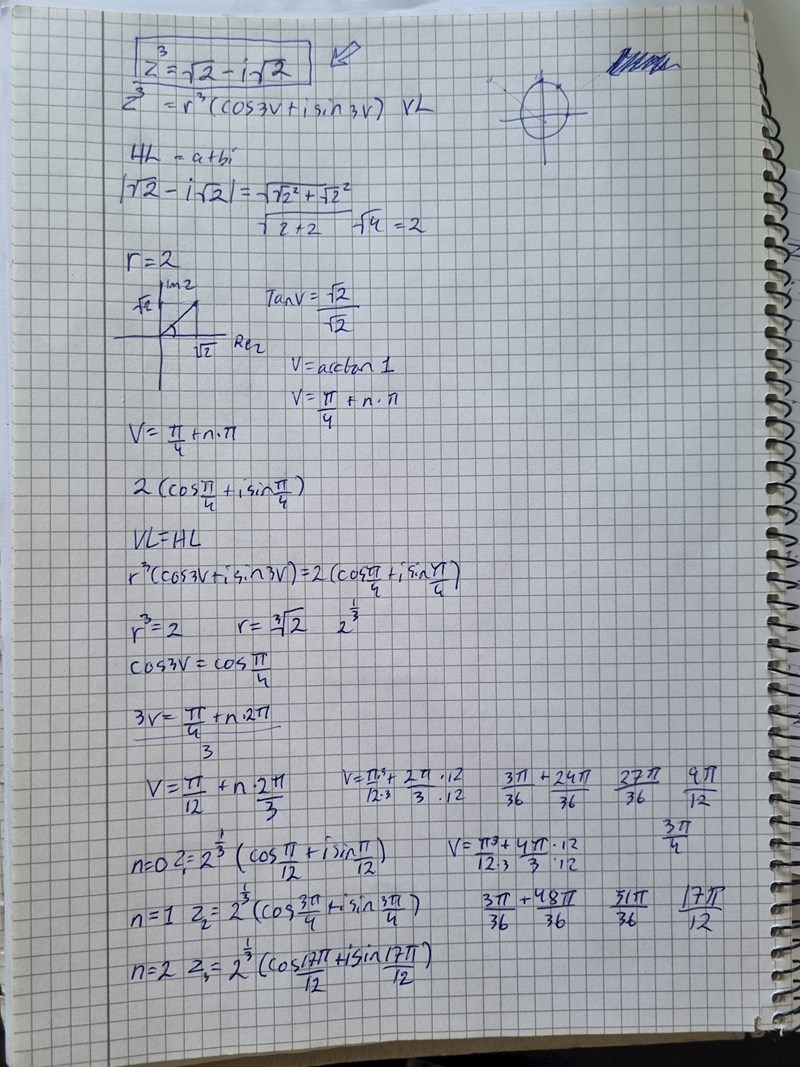 z³ = √2 - i√2
z³ = r³(cos3v + i sin3v) VL
HL = a+bi
|√2 - i√2| = √(√2² + √2²)
√(2+2) √4 = 2
r = 2
Im z
√2
√2 Re z
Tan v = √2/√2
V = arctan 1
V = π/4 + n·π
V = π/4 + n·π
2(cos π/4 + i sin π/4)
VL = HL
r³(cos3v + i sin3v) = 2(cos π/4 + i sin π/4)
r³ = 2 r = ³√2 2^(1/3)
cos3v = cos π/4
3v = π/4 + n·2π
3
V = π/12 + n·2π/3 V = π·3/12·3 + 2π·12/3·12 3π/36 + 24π/36 27π/36 9π/12
3π/4
n=0 z₁ = 2^(1/3) (cos π/12 + i sin π/12) V = π·3/12·3 + 4π·12/3·12
n=1 z₂ = 2^(1/3) (cos 3π/4 + i sin 3π/4) 3π/36 + 48π/36 51π/36 17π/12
n=2 z₃ = 2^(1/3) (cos 17π/12 + i sin 17π/12)